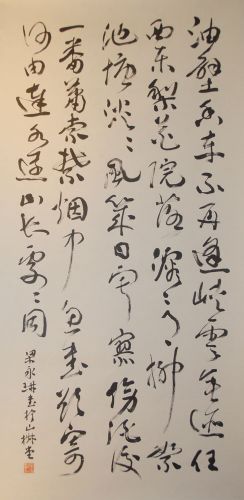 油壁香車不再逢峽雲無迹任
西東梨花院落溶々月柳絮
池塘淡々風幾日寂寥傷酒後
一番蕭索禁烟中魚書欲寄
何由達水遠山長處々同
梁永琳書於山樵堂